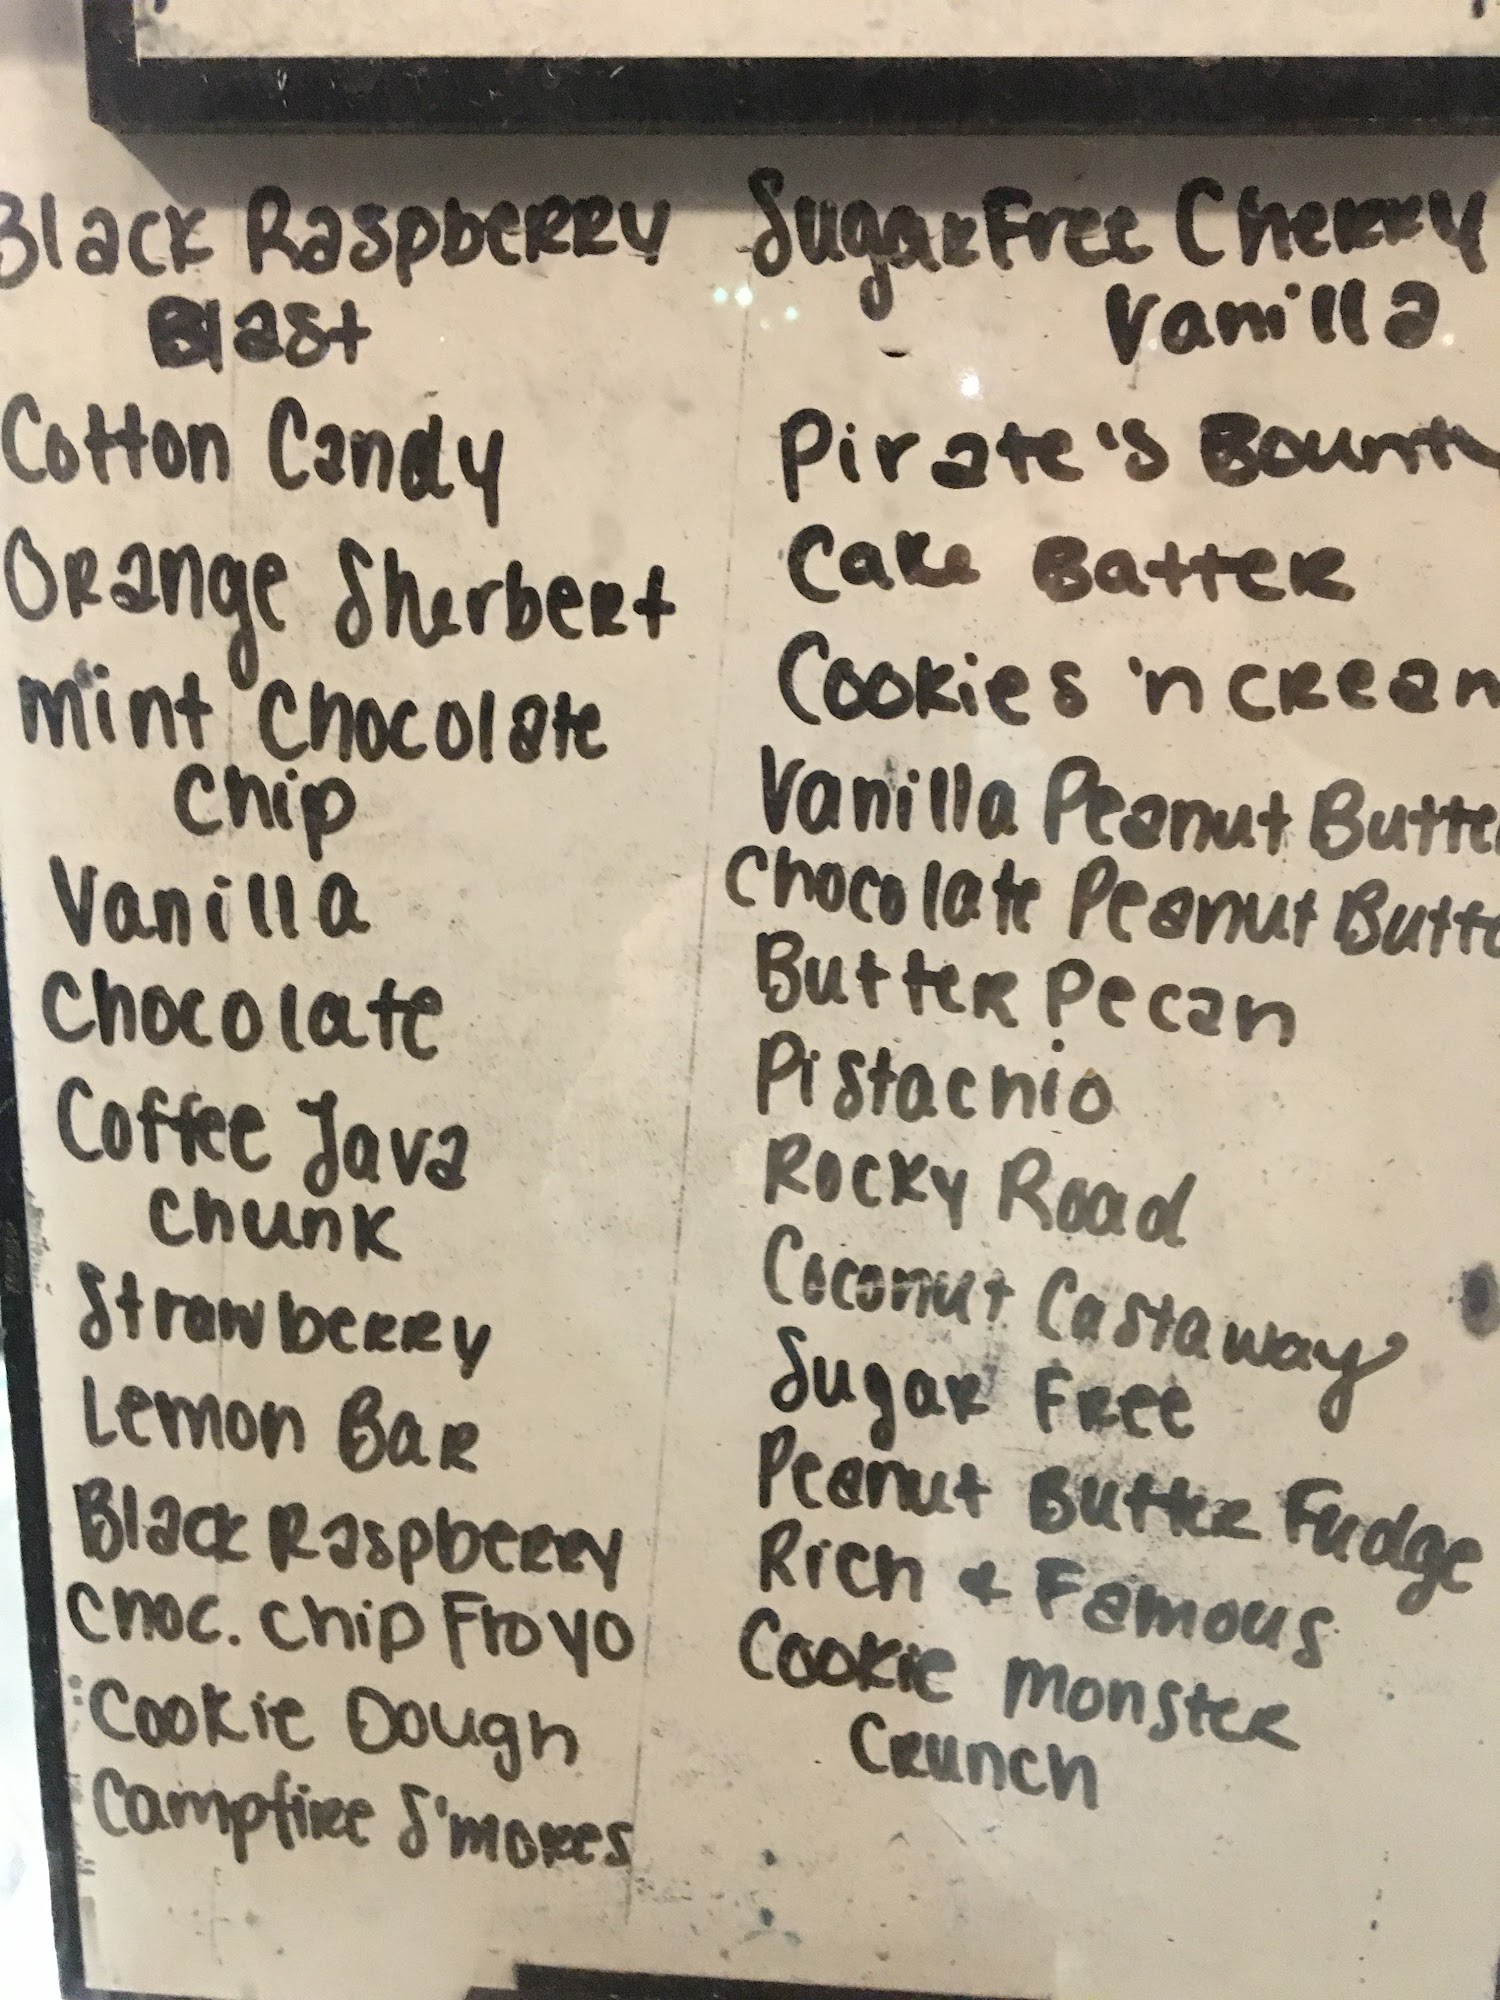 Black Raspberry
Blast
Cotton Candy
Orange Sherbert
Mint Chocolate
Chip
Vanilla
Chocolate
Coffee Java
Chunk
Strawberry
Lemon Bar
Black Raspberry
Choc. Chip Froyo
Cookie Dough
Campfire S'mores
Sugar Free Cherry
Vanilla
Pirate's Bounty
Cake Batter
Cookies 'n Cream
Vanilla Peanut Butter
Chocolate Peanut Butte
Butter Pecan
Pistachio
Rocky Road
Coconut Castaway
Sugar Free
Peanut Butter Fudge
Rich & Famous
Cookie Monster
Crunch